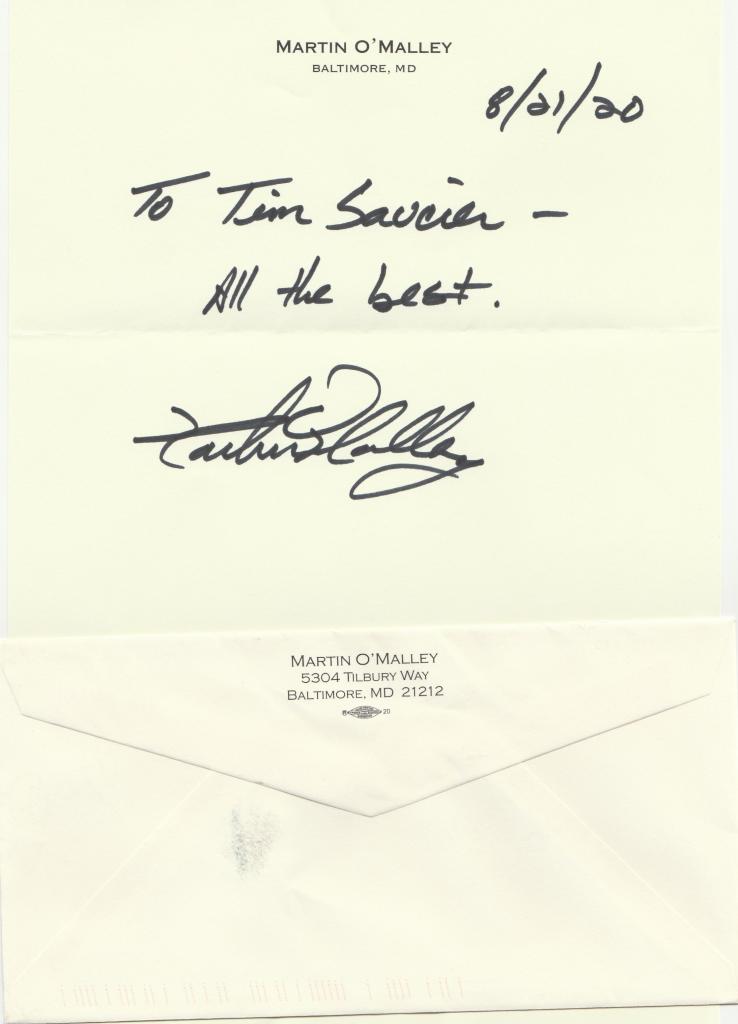 MARTIN O'MALLEY
BALTIMORE, MD
8/21/20
To Tim Saucier –
All the best.
Martin O'Malley
MARTIN O'MALLEY
5304 TILBURY WAY
BALTIMORE, MD 21212
20